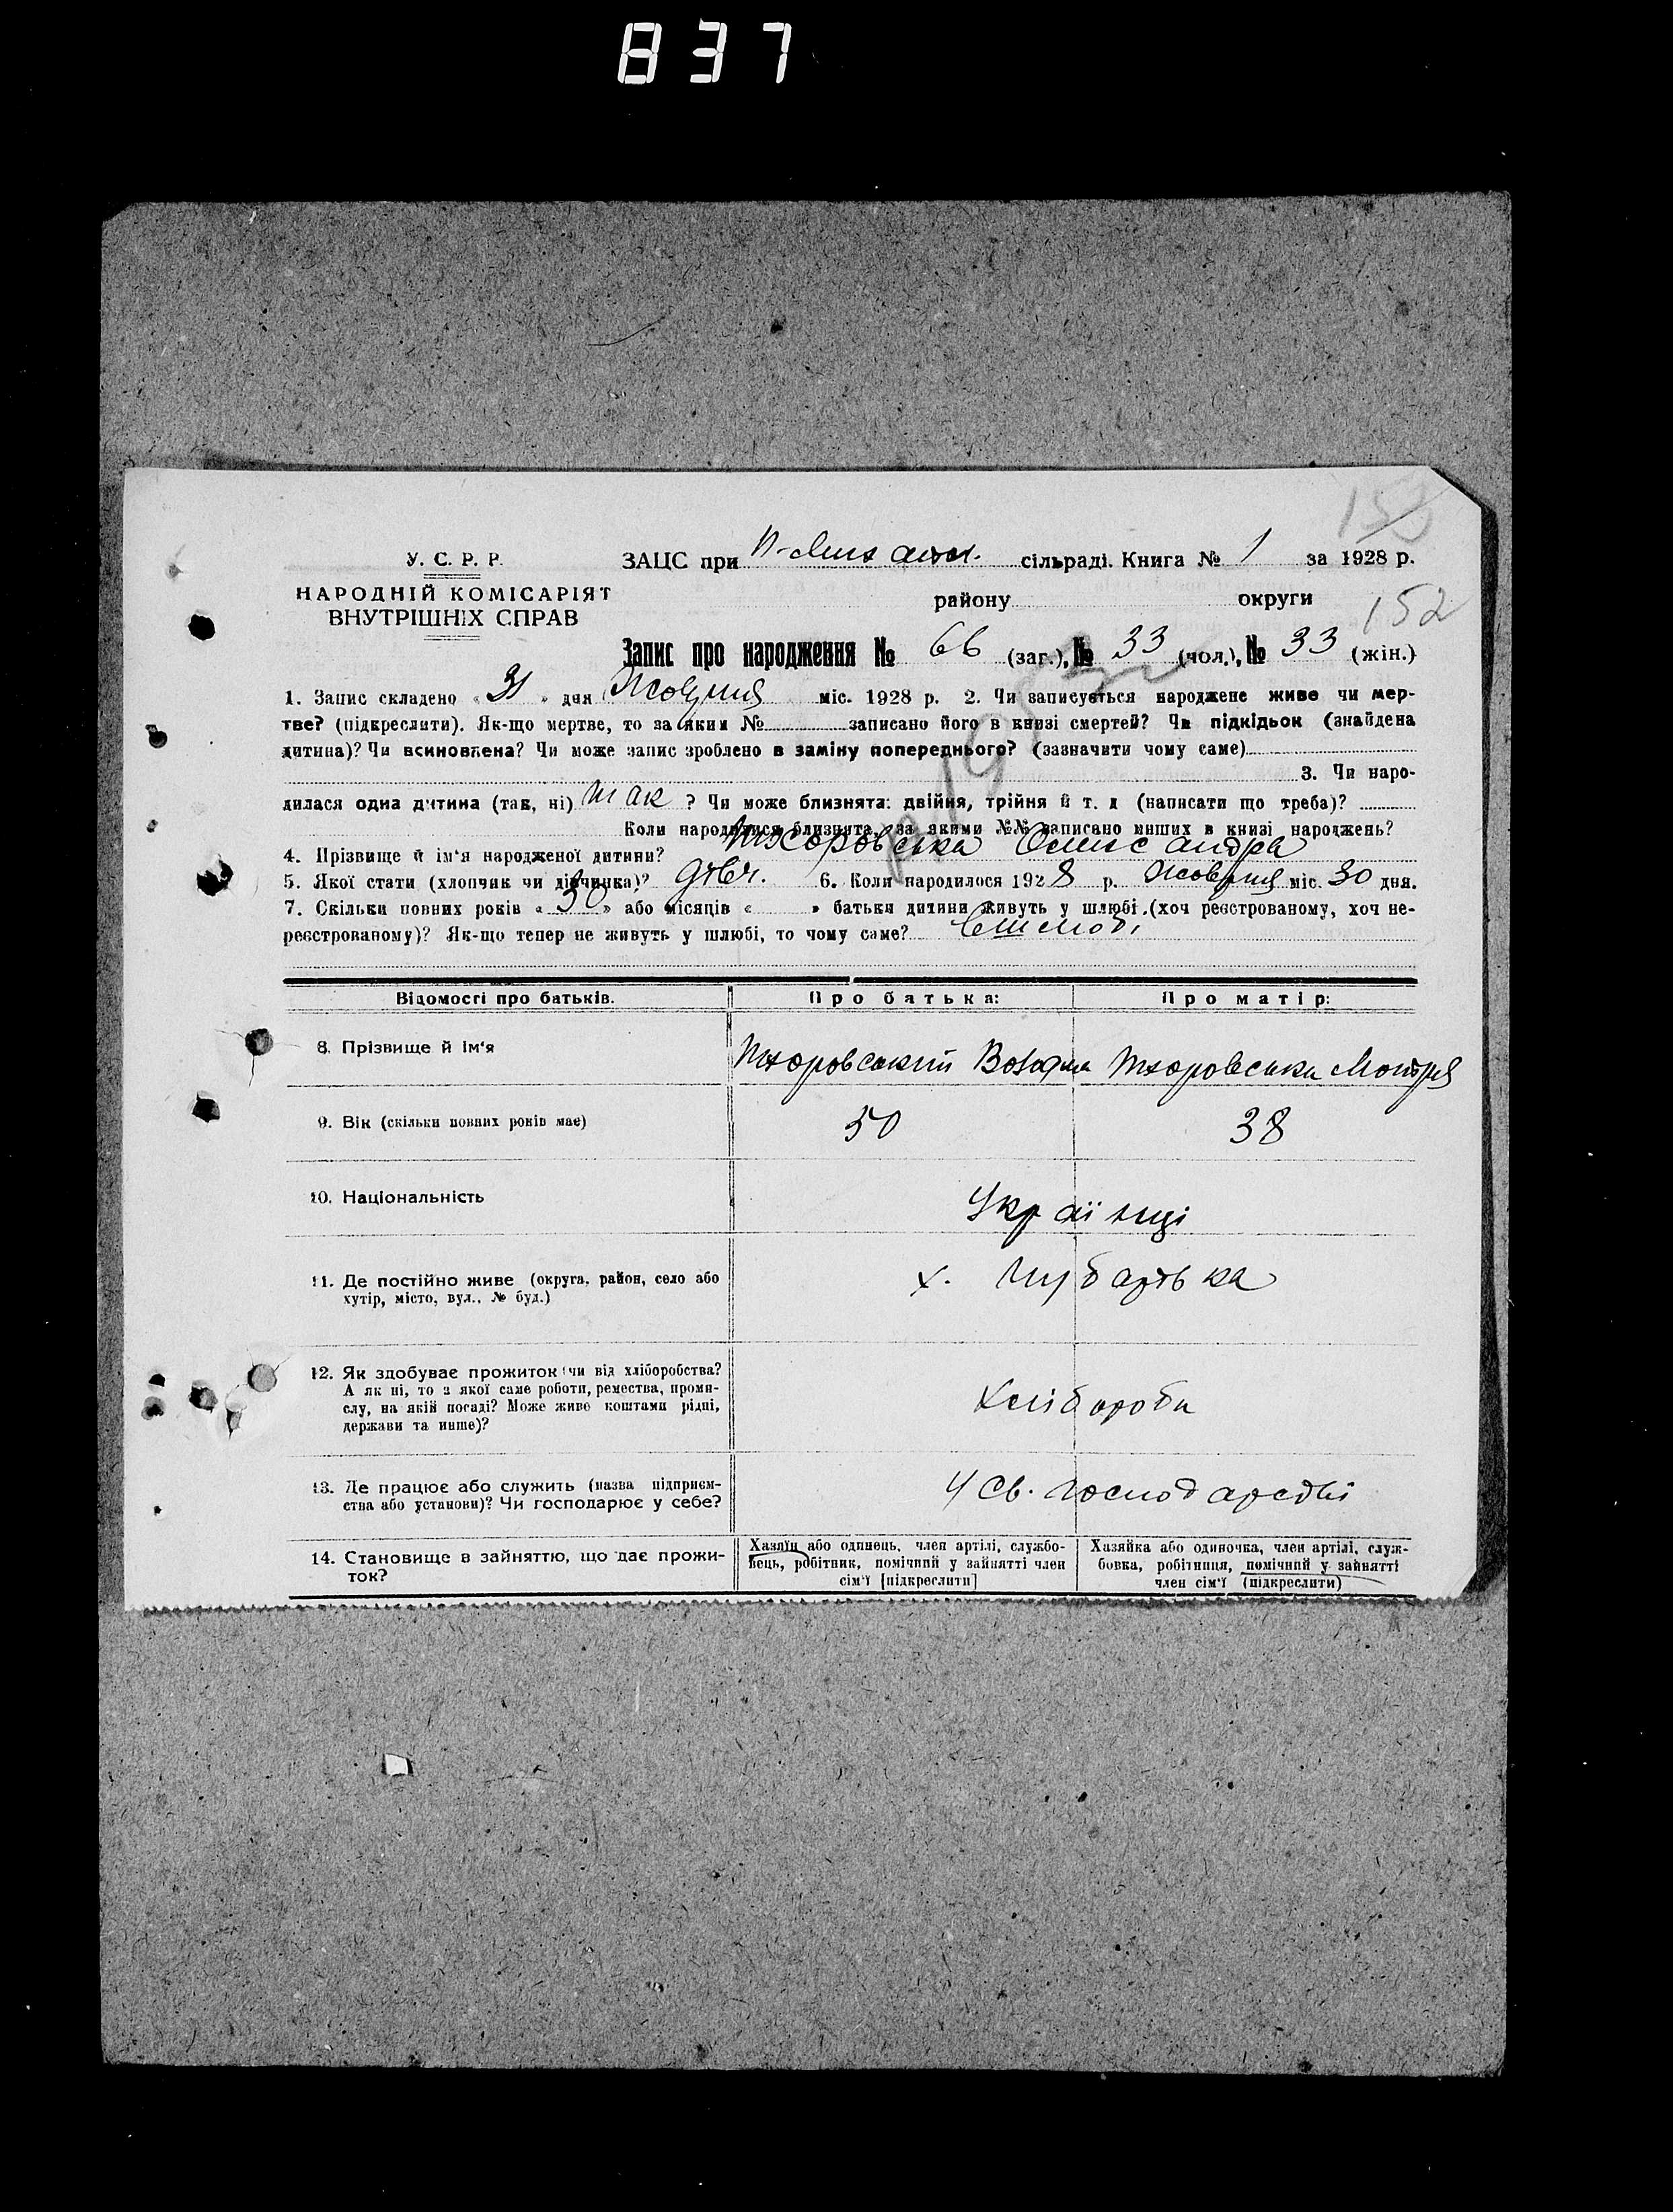 837
153
У. С. Р. Р.
НАРОДНІЙ КОМІСАРІЯТ
ВНУТРІШНІХ СПРАВ
ЗАЦС при сільраді. Книга № 1 за 1928 р.
району округи
152
Запис про народження № 66 (заг.), № 33 (чол.), № 33 (жін.)
1. Запис складено « 31 » дня Жовтня міс. 1928 р. 2. Чи записується народжене живе чи мер-
тве? (підкреслити). Як-що мертве, то за яким № записано його в книзі смертей? Чи підкідьок (знайдена
дитина)? Чи всиновлена? Чи може запис зроблено в заміну попереднього? (зазначити чому саме)
3. Чи наро-
дилася одна дитина (так, ні) так ? Чи може близнята: двійня, трійня й т. д (написати що треба)?
Коли народилися близнята, за якими №№ записано инших в книзі народжень?
4. Прізвище й ім'я народженої дитини? Тхоровська Олександра
5. Якої стати (хлопчик чи дівчинка)? дівч. 6. Коли народилося 1928 р. Жовтня міс. 30 дня.
7. Скільки повних років « » або місяців « » батьки дитини живуть у шлюбі (хоч реєстрованому, хоч не-
реєстрованому)? Як-що тепер не живуть у шлюбі, то чому саме?
Відомості про батьків. Про батька: Про матір:
8. Прізвище й ім'я Тхоровський Тхоровська Мотря
9. Вік (скільки повних років має) 50 38
10. Національність Українці
11. Де постійно живе (округа, район, село або
хутір, місто, вул., № буд.) х. Чубарівка
12. Як здобуває прожиток (чи від хліборобства?
А як ні, то з якої саме роботи, ремества, проми-
слу, на якій посаді? Може живе коштами рідні,
держави та инше)? Хлібороби
13. Де працює або служить (назва підприєм-
ства або установи)? Чи господарює у себе? У св. господарстві
14. Становище в зайняттю, що дає прожи-
ток?
Хазяїн або одинець, член артілі, службо-
вець, робітник, помічний у зайнятті член
сім'ї [підкреслити]
Хазяйка або одиночка, член артілі, служ-
бовка, робітниця, помічний у зайнятті
член сім'ї (підкреслити)